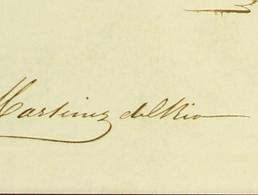 Martinez del Rio